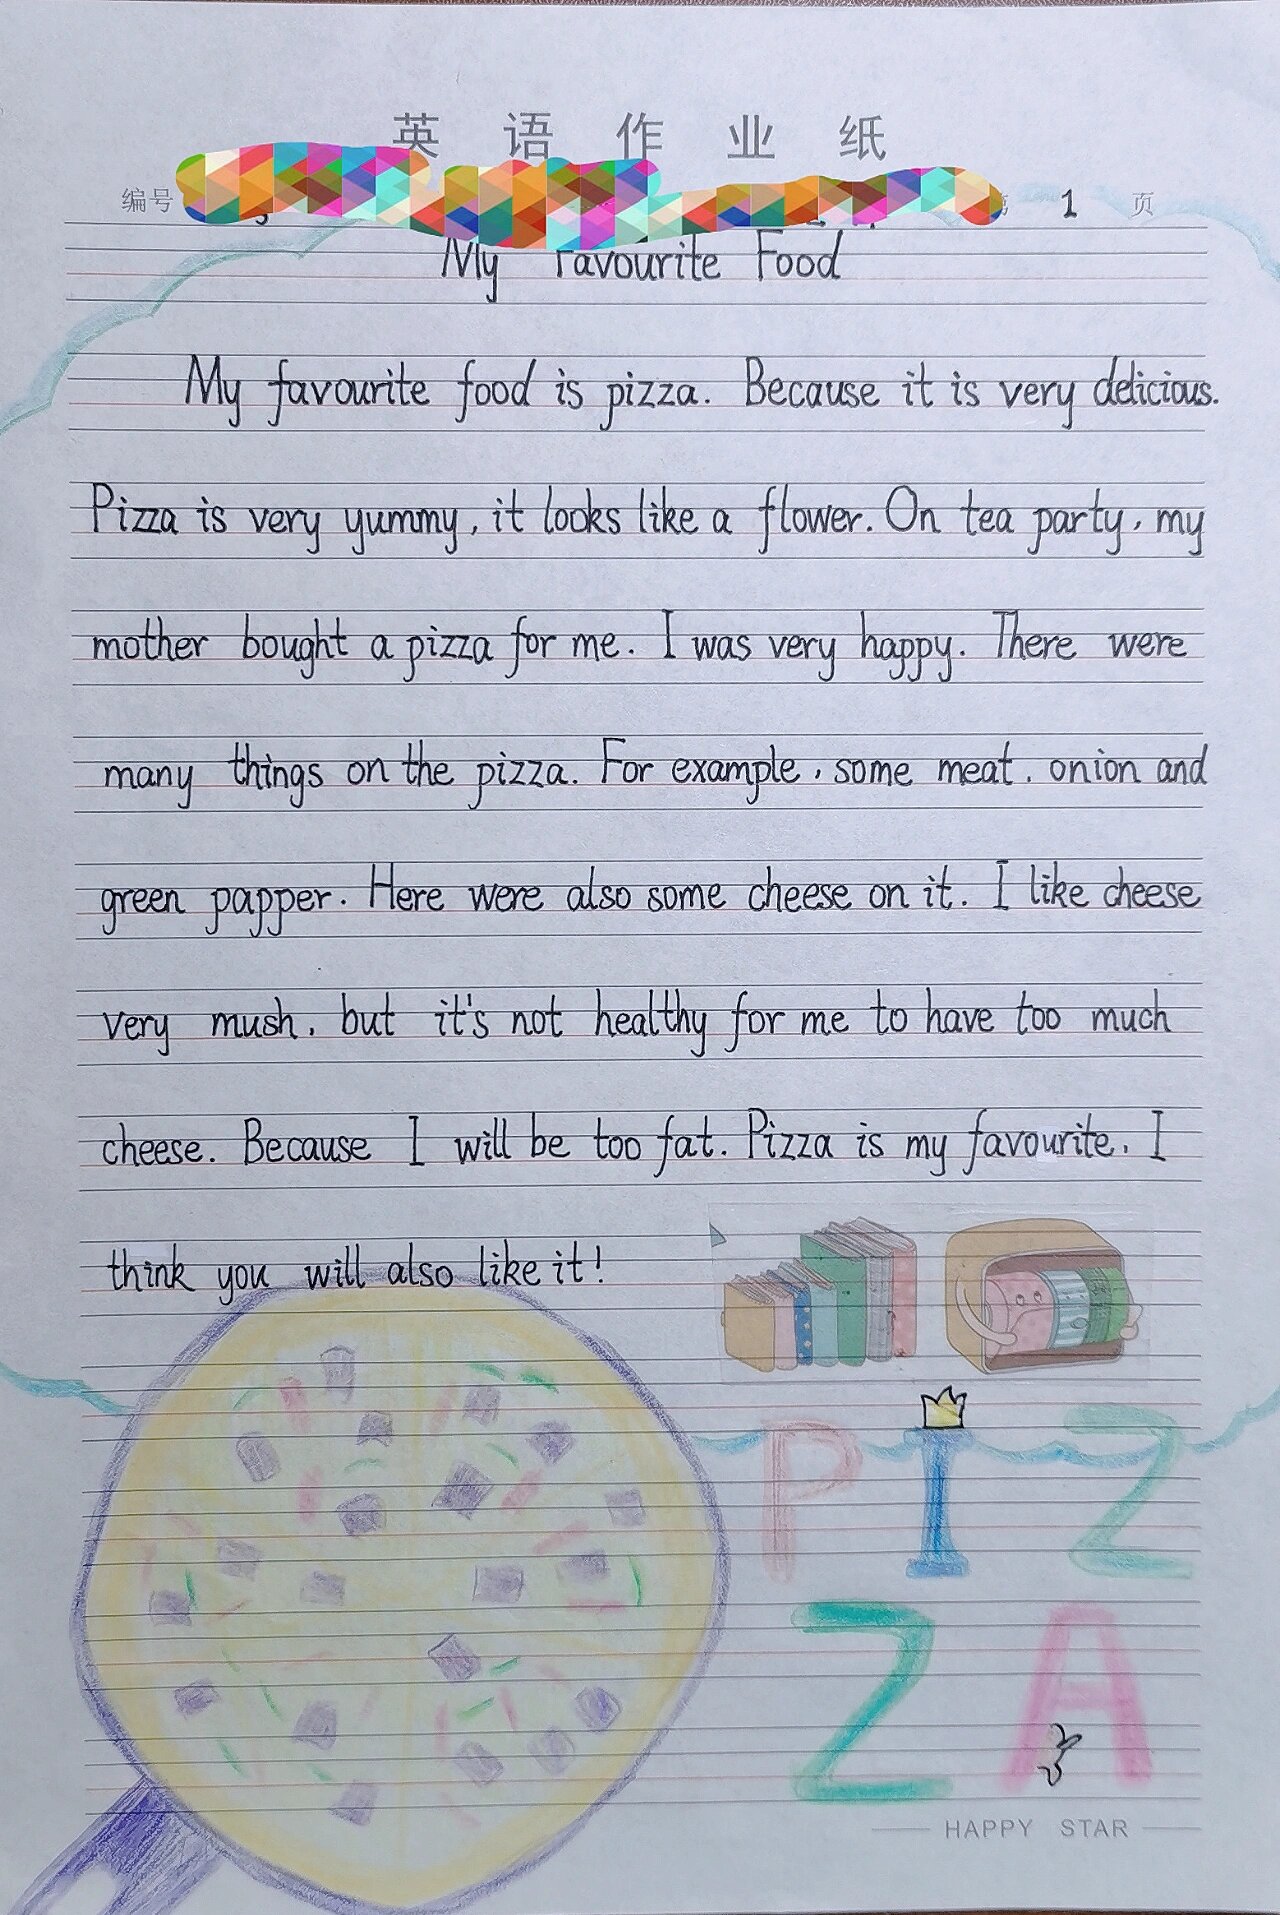 英语作业纸
编号 1 页
My Favourite Food
My favourite food is pizza. Because it is very delicious.
Pizza is very yummy, it looks like a flower. On tea party, my
mother bought a pizza for me. I was very happy. There were
many things on the pizza. For example, some meat, onion and
green papper. Here were also some cheese on it. I like cheese
very mush, but it's not healthy for me to have too much
cheese. Because I will be too fat. Pizza is my favourite. I
think you will also like it!
PIZ
ZA
HAPPY STAR